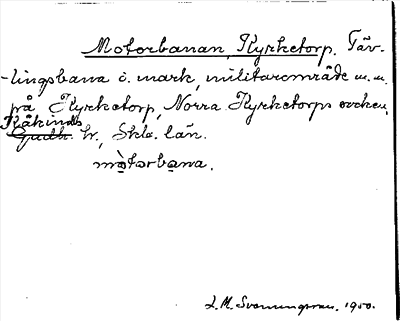 Motorbanan, Kyrketorp. Täv-
-lingsbana i. mark, militärområde m. m.
på Kyrketorp, Norra Kyrketorps socken,
Kåkinds
Gudh. hr, Skbg. län.
mòtorbana.
L. M. Svanungsson. 1950.